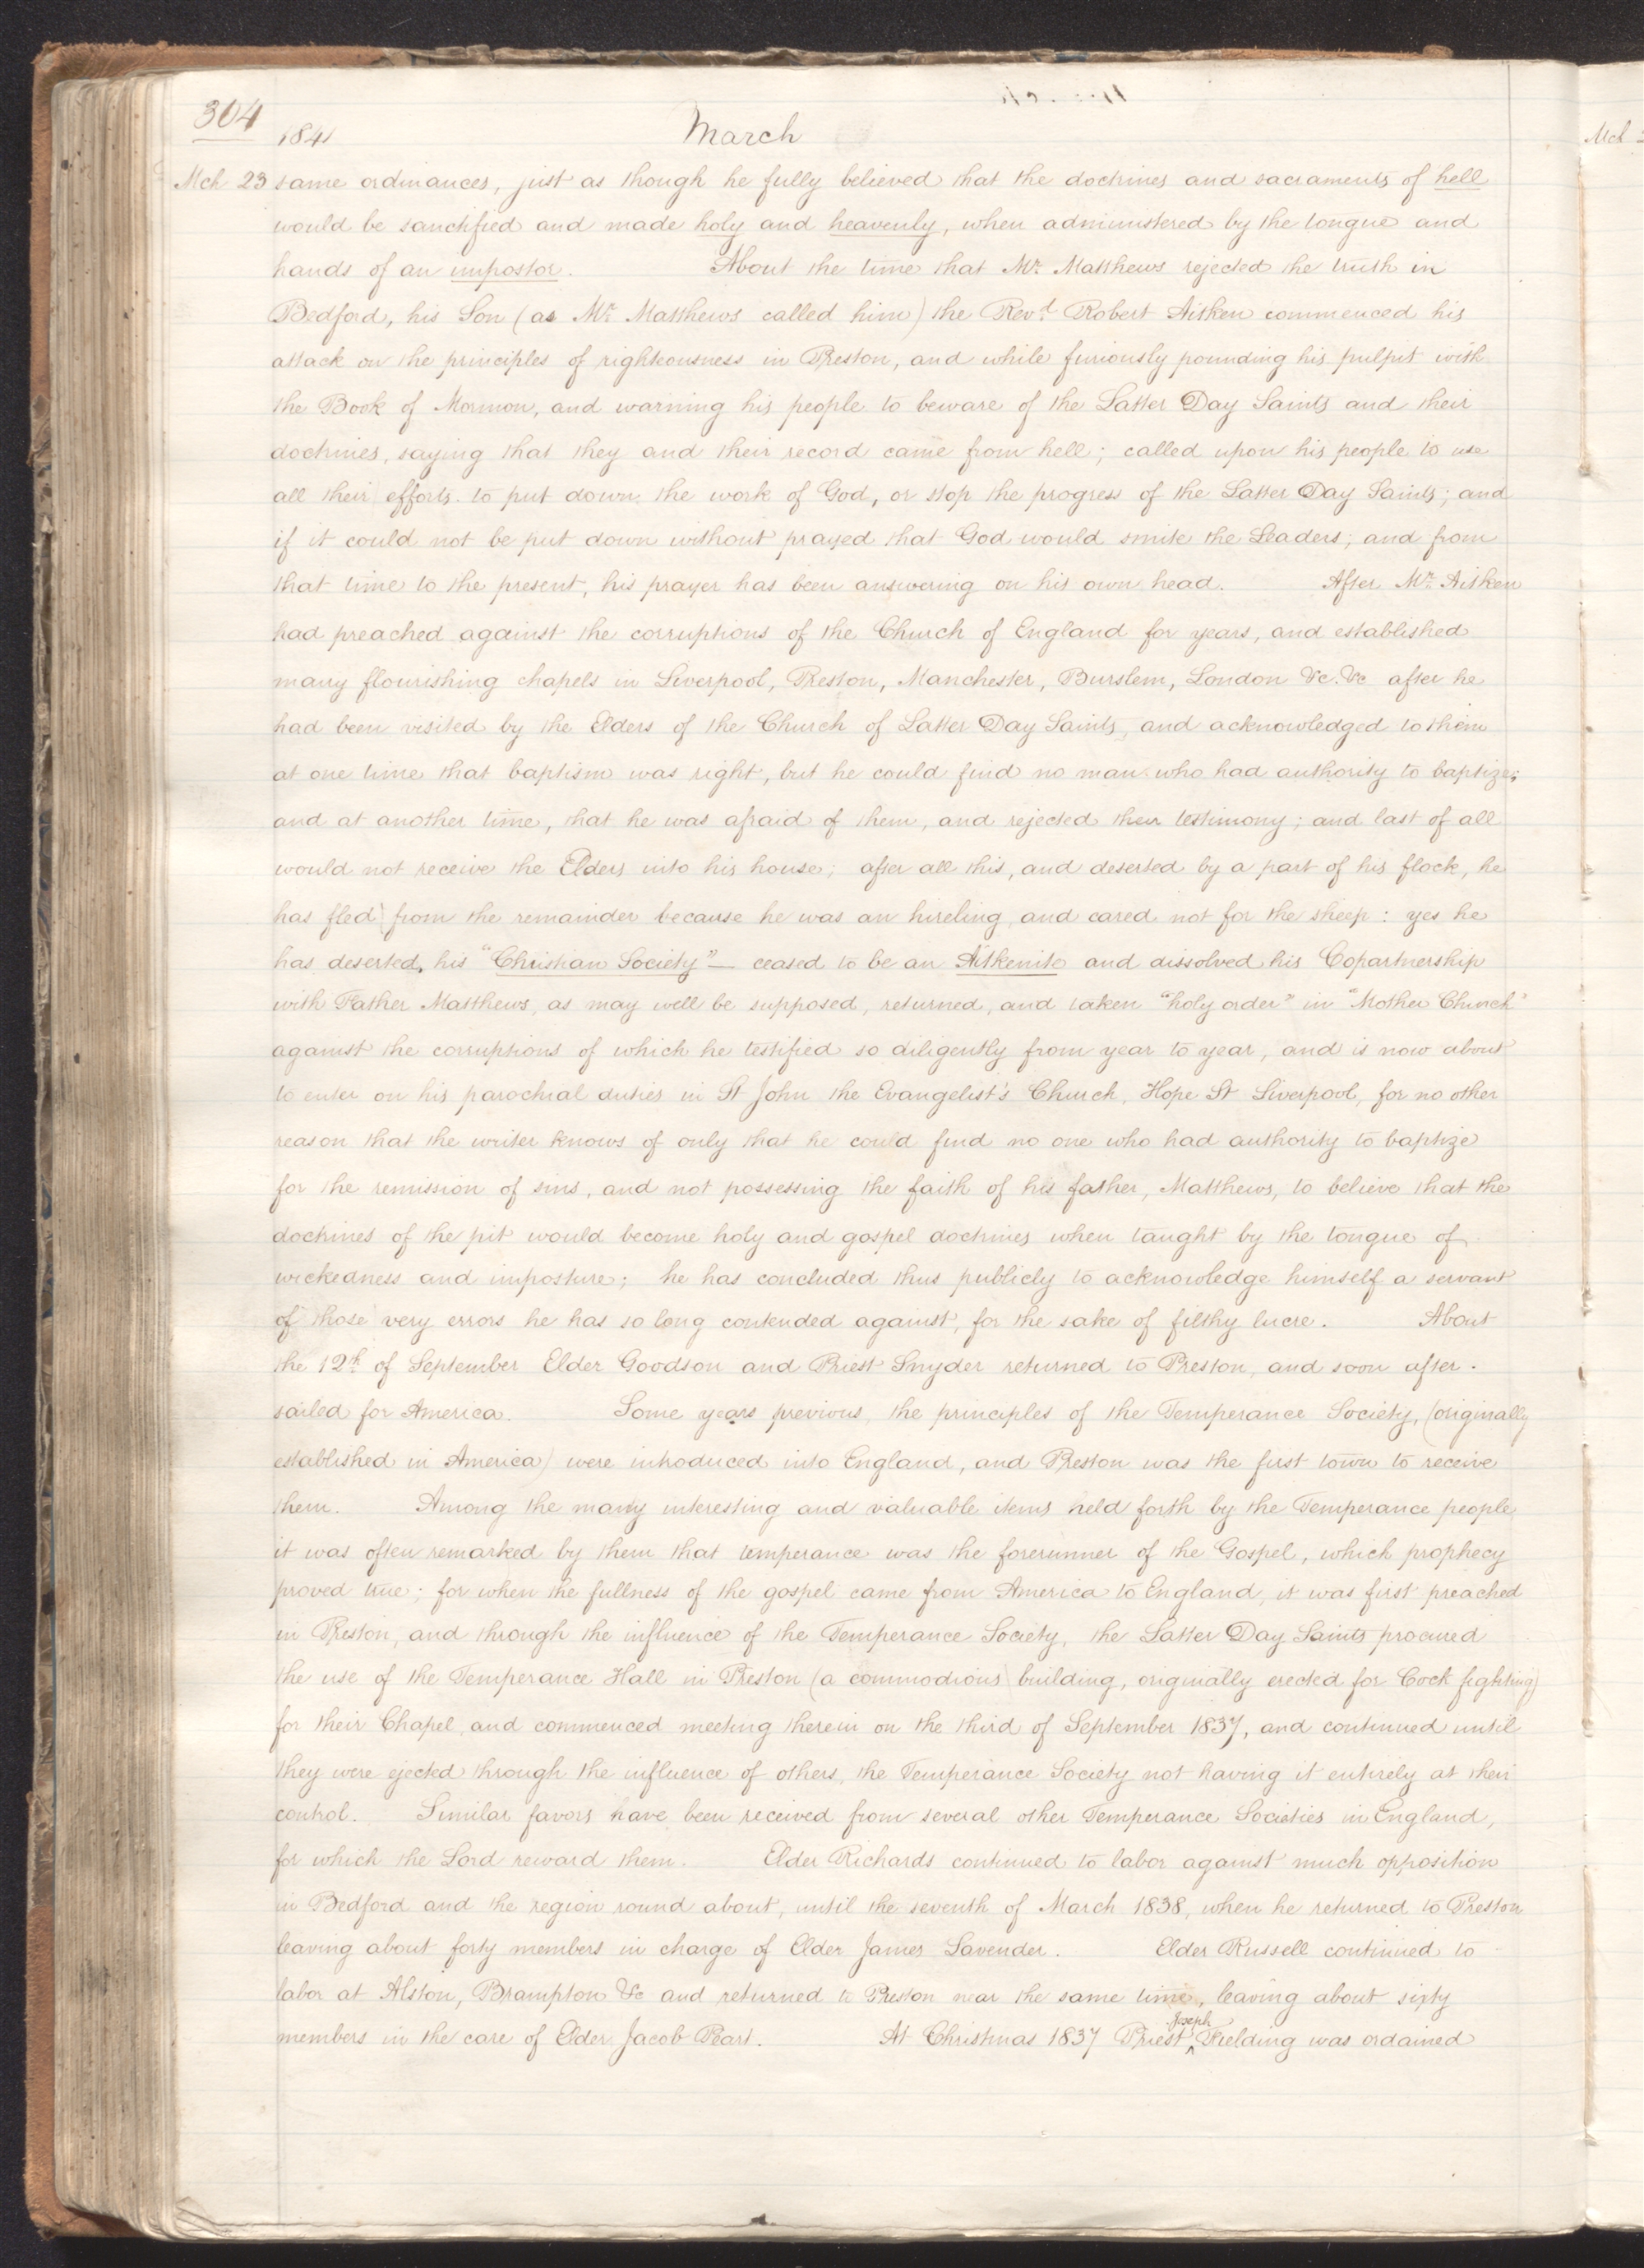 304
1841
March
Mch 23 same ordinances, just as though he fully believed that the doctrines and sacraments of hell
would be sanctified and made holy and heavenly, when administered by the tongue and
hands of an impostor. About the time that Mr. Matthews rejected the truth in
Bedford, his Son (as Mr. Matthews called him) the Revd. Robert Aitken commenced his
attack on the principles of righteousness in Preston, and while furiously pounding his pulpit with
the Book of Mormon, and warning his people to beware of the Latter Day Saints and their
doctrines, saying that they and their record came from hell; called upon his people to use
all their efforts to put down the work of God, or stop the progress of the Latter Day Saints; and
if it could not be put down without prayed that God would smite the Leaders; and from
that time to the present, his prayer has been answering on his own head. After Mr. Aitken
had preached against the corruptions of the Church of England for years, and established
many flourishing chapels in Liverpool, Preston, Manchester, Burslem, London &c. &c after he
had been visited by the Elders of the Church of Latter Day Saints, and acknowledged to them
at one time that baptism was right, but he could find no man who had authority to baptize;
and at another time, that he was afraid of them, and rejected their testimony; and last of all
would not receive the Elders into his house; after all this, and deserted by a part of his flock, he
has fled from the remainder because he was an hireling, and cared not for the sheep: yes he
has deserted, his "Christian Society" — ceased to be an Aitkenite and dissolved his Copartnership
with Father Matthews, as may well be supposed, returned, and taken "holy order" in "Mother Church"
against the corruptions of which he testified so diligently from year to year, and is now about
to enter on his parochial duties in St John the Evangelist's Church, Hope St Liverpool, for no other
reason that the writer knows of only that he could find no one who had authority to baptize
for the remission of sins, and not possessing the faith of his father, Matthews, to believe that the
doctrines of the pit would become holy and gospel doctrines when taught by the tongue of
wickedness and imposture; he has concluded thus publicly to acknowledge himself a servant
of those very errors he has so long contended against, for the sake of filthy lucre. About
the 12th. of September Elder Goodson and Priest Snyder returned to Preston, and soon after
sailed for America. Some years previous, the principles of the Temperance Society, (originally
established in America) were introduced into England, and Preston was the first town to receive
them. Among the many interesting and valuable items held forth by the Temperance people
it was often remarked by them that temperance was the forerunner of the Gospel, which prophecy
proved true; for when the fullness of the gospel came from America to England, it was first preached
in Preston, and through the influence of the Temperance Society, the Latter Day Saints procured
the use of the Temperance Hall in Preston (a commodious building, originally erected for Cock fighting)
for their Chapel, and commenced meeting therein on the third of September 1837, and continued until
they were ejected through the influence of others, the Temperance Society not having it entirely at their
control. Similar favors have been received from several other Temperance Societies in England,
for which the Lord reward them. Elder Richards continued to labor against much opposition
in Bedford and the region round about, until the seventh of March 1838, when he returned to Preston
leaving about forty members in charge of Elder James Lavender. Elder Russell continued to
labor at Alston, Brampton &c and returned to Preston near the same time, leaving about sixty
members in the care of Elder Jacob Peart. At Christmas 1837 Priest ^Joseph Fielding was ordained
Mch